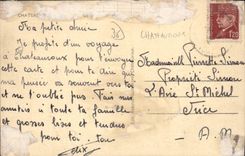 CHATEAU
Ma petite
Je profite d'un voyage
à Chateauroux pour t'envoyer
cette carte et pour te dire que
ma pensée va souvent vers toi
et ne t'oublie pas. Fais mes
amitiés à toute ta famille
et grosses bises et tendres
pour toi
Félix
36
CHATEAUROUX
1F20
Mademoiselle Pierrette Simon
Propriété Simon
L'Aire St Michel
Nice
A.M.